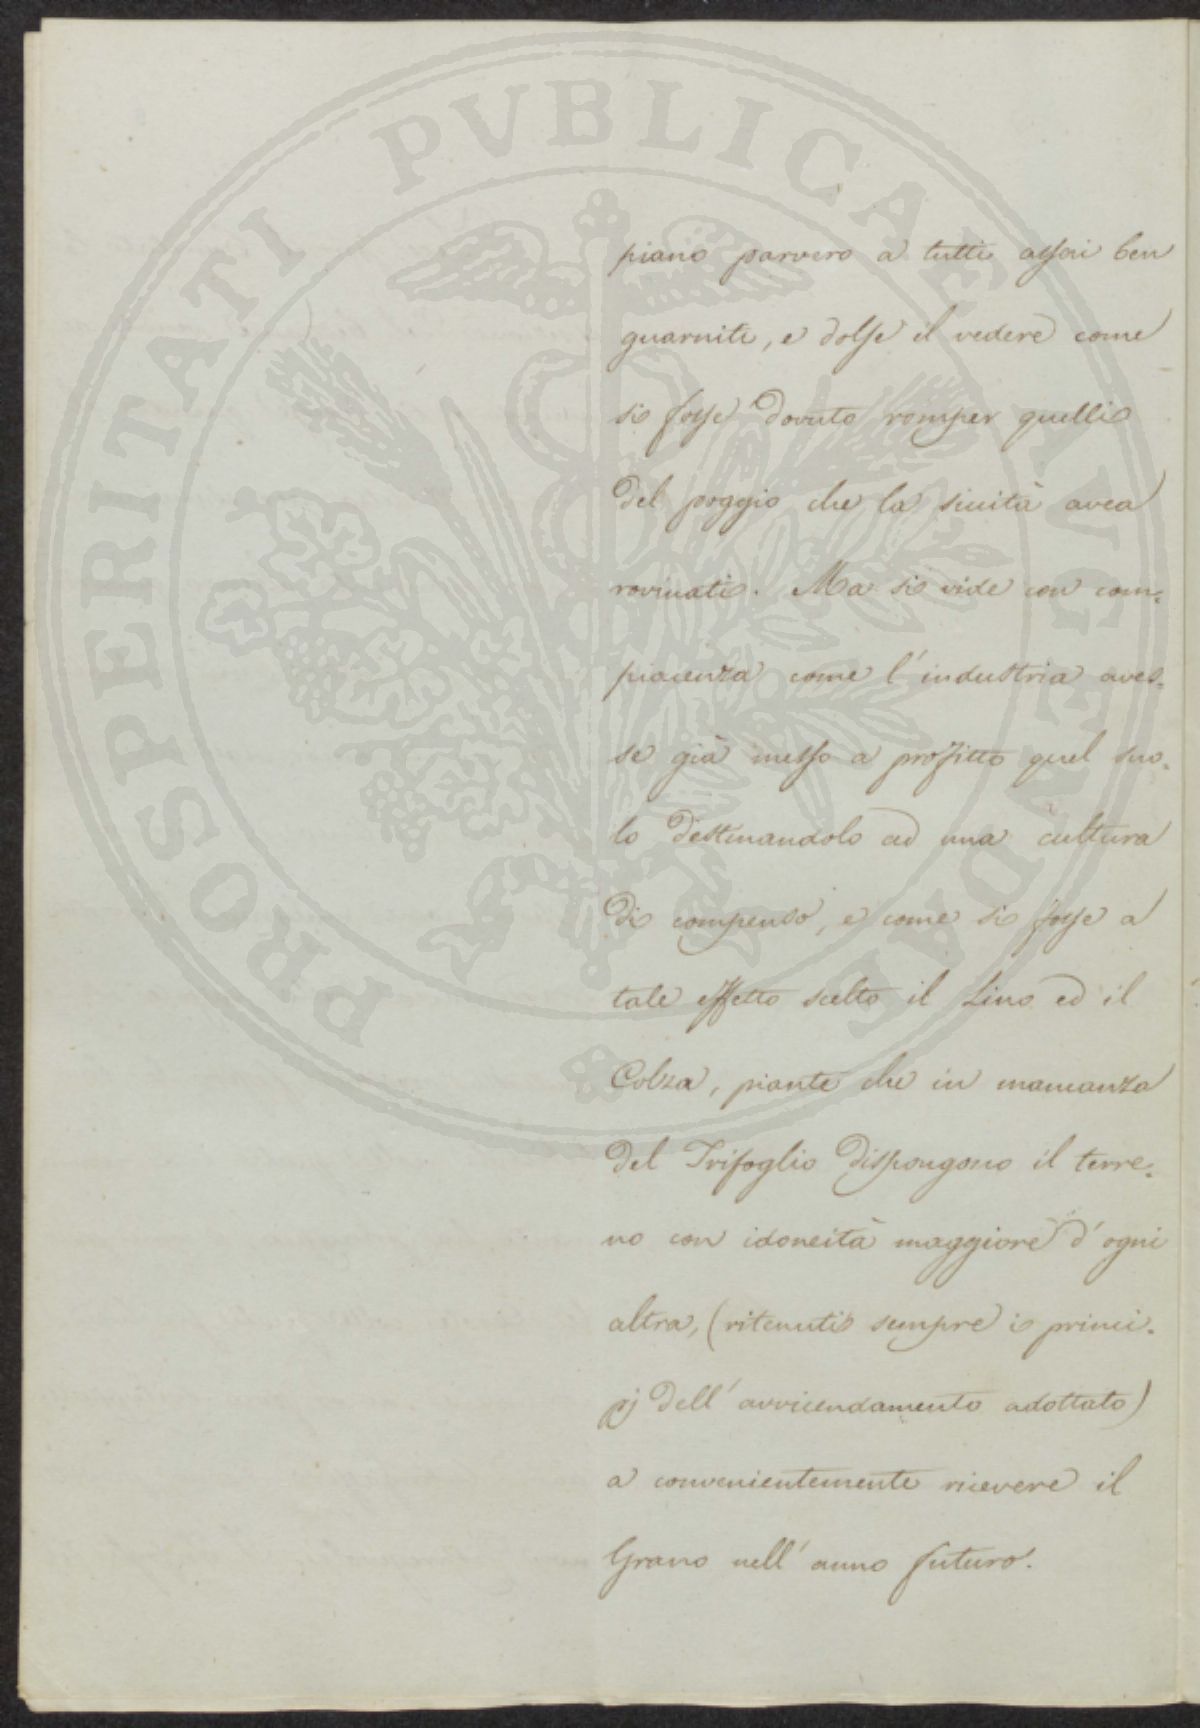 PROSPERITATI PVBLICAE AVGENDAE
piano parvero a tutti assai ben
guarniti, e dolse il vedere come
si fosse dovuto romper quelli
del poggio che la siccità avea
rovinati. Ma si vide con com=
piacenza come l'industria aves=
se già messo a profitto quel suo=
lo destinandolo ad una cultura
di compenso, e come si fosse a
tale effetto scelto il Lino ed il
Colza, piante che in mancanza
del Trifoglio dispongono il terre=
no con idoneità maggiore d'ogni
altra, (ritenuti sempre i princi=
pj dell'avvicendamento adottato)
a convenientemente ricevere il
Grano nell'anno futuro.